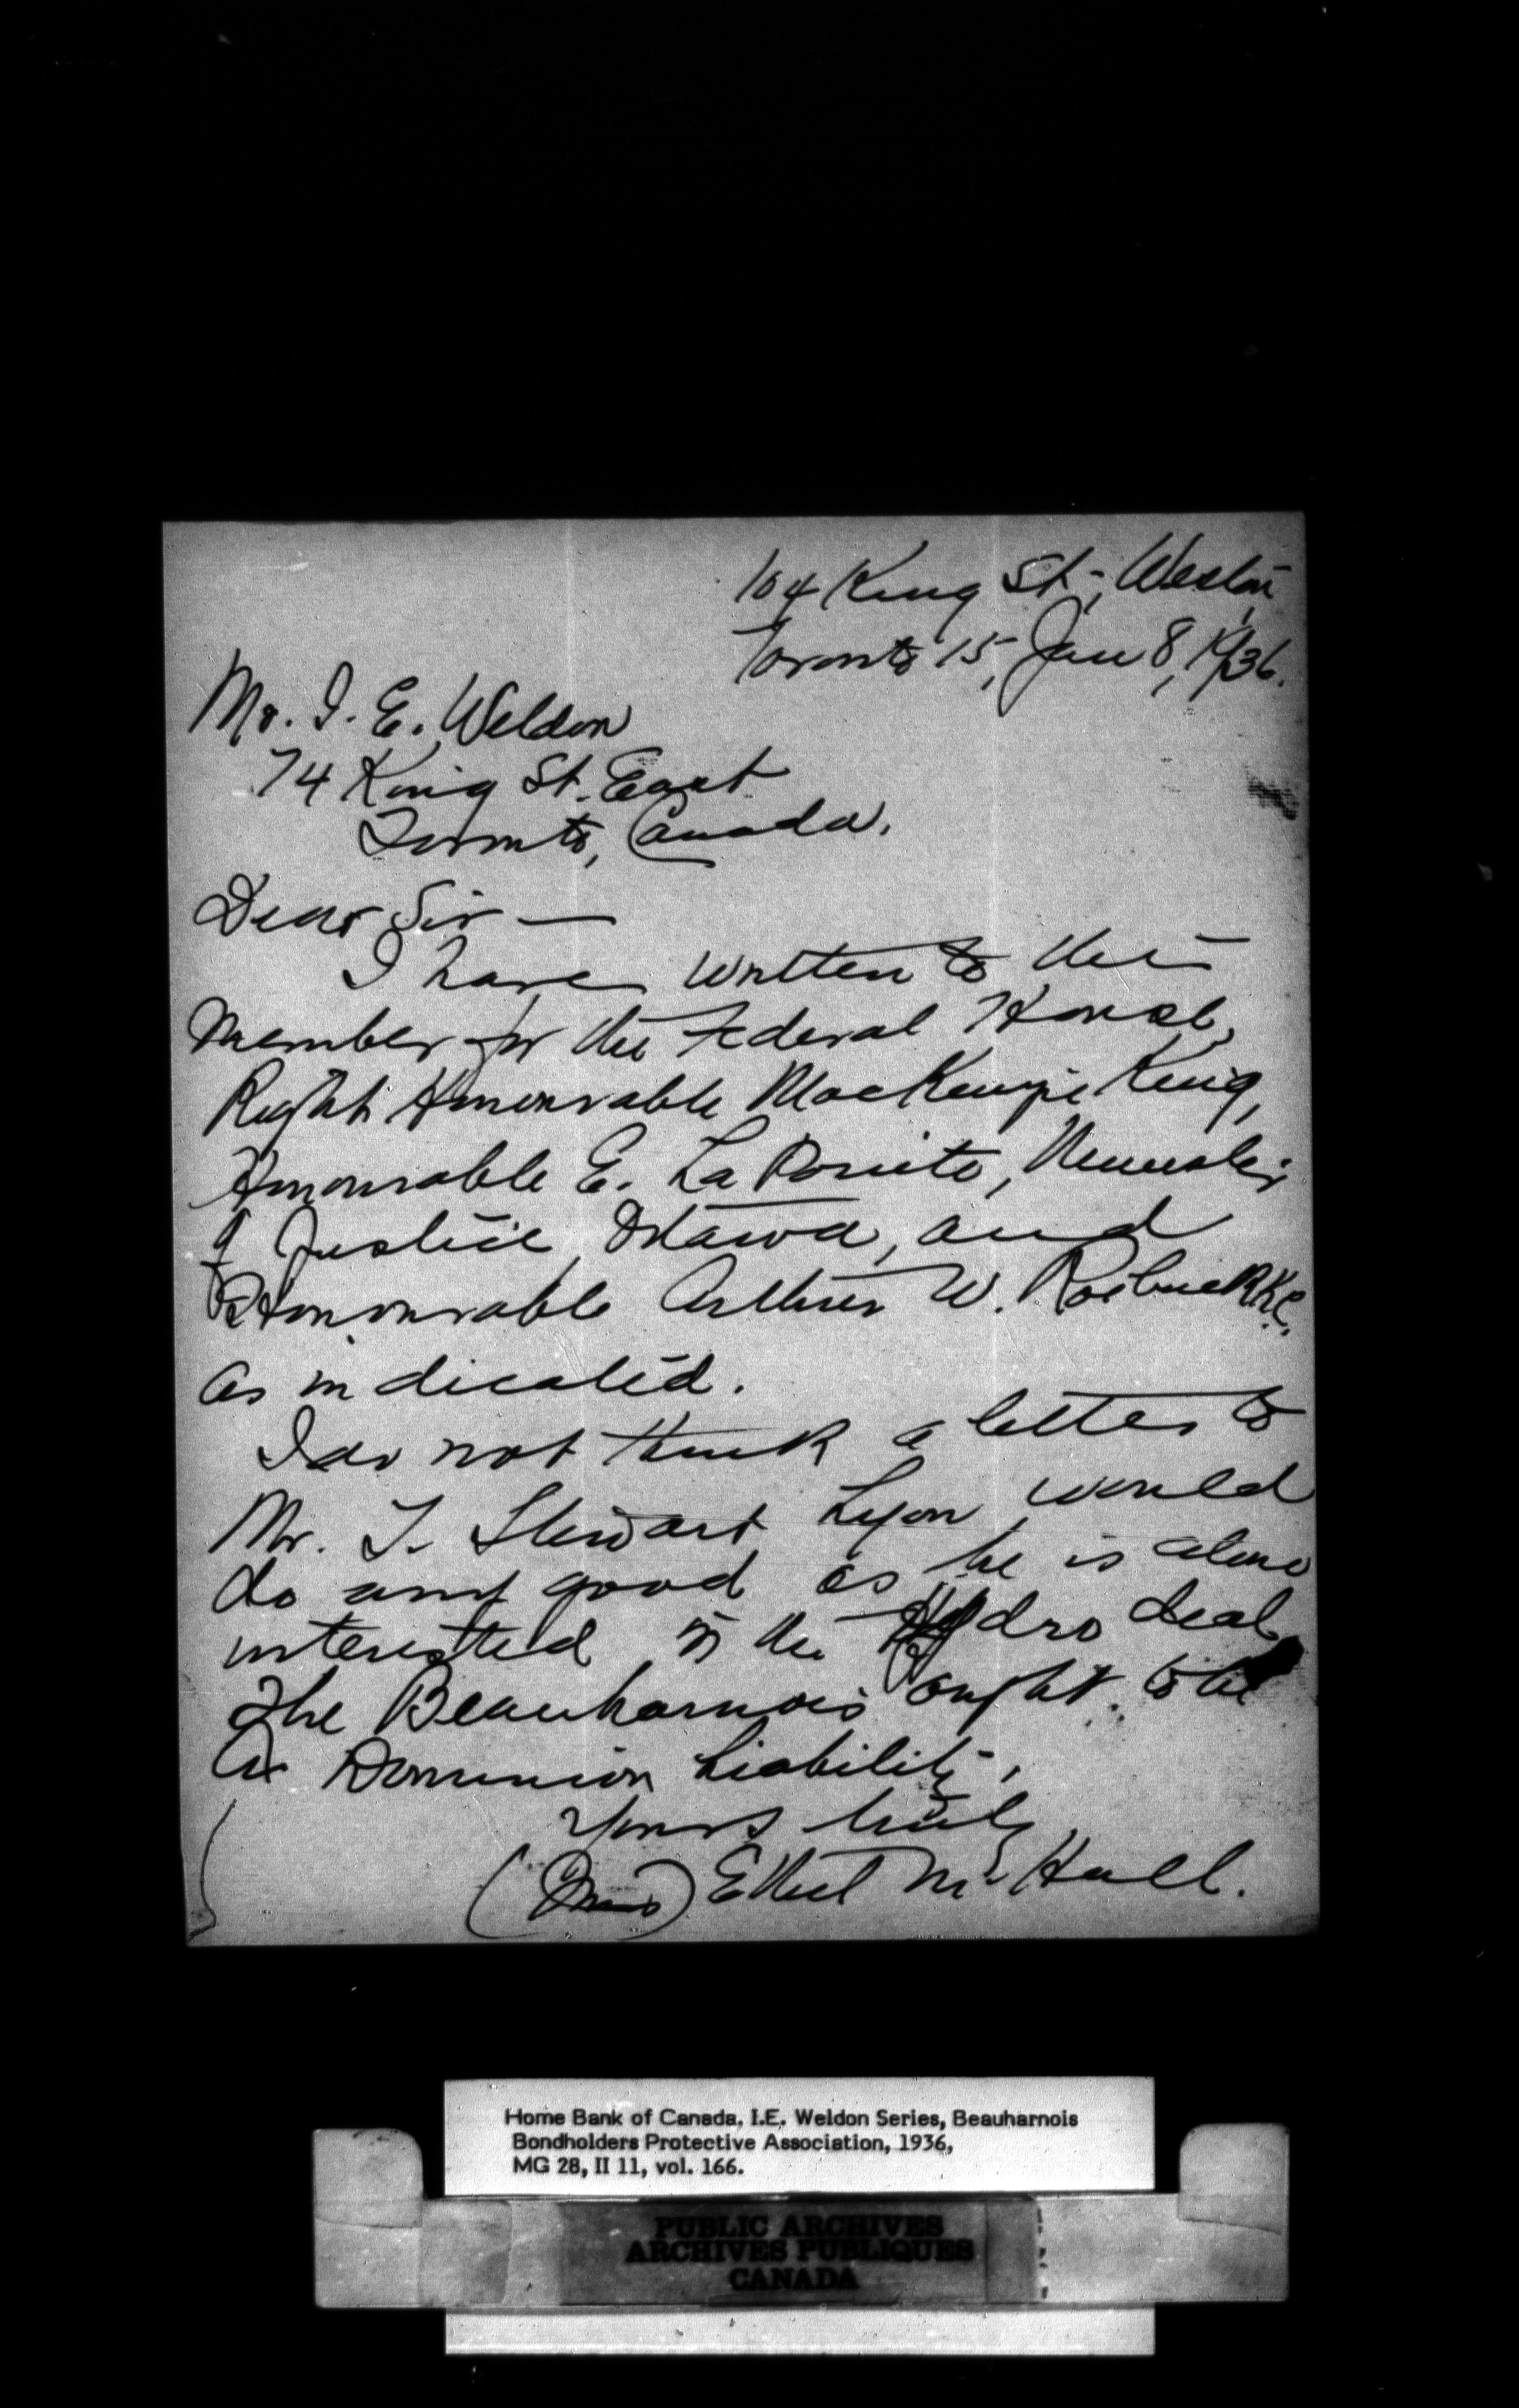 104 King St., Weston,
Toronto 15, Jan 8, 1936.
Mr. I. E. Weldon
74 King St. East
Toronto, Canada.
Dear Sir —
I have written to the
member for the Federal House,
Right Honourable MacKenzie King,
Honourable E. La Pointe, Minister
of Justice, Ottawa, and
Honourable Arthur W. Roebuck K.C.
as indicated.
I do not think a letter to
Mr. T. Stewart Lyon would
do any good as he is alone
interested in the Hydro deal
The Beauharnois ought to be
a Dominion Liability,
Yours truly,
(Miss) Ethel M. Hall.
Home Bank of Canada. I.E. Weldon Series, Beauharnois
Bondholders Protective Association, 1936,
MG 28, II 11, vol. 166.
PUBLIC ARCHIVES
ARCHIVES PUBLIQUES
CANADA